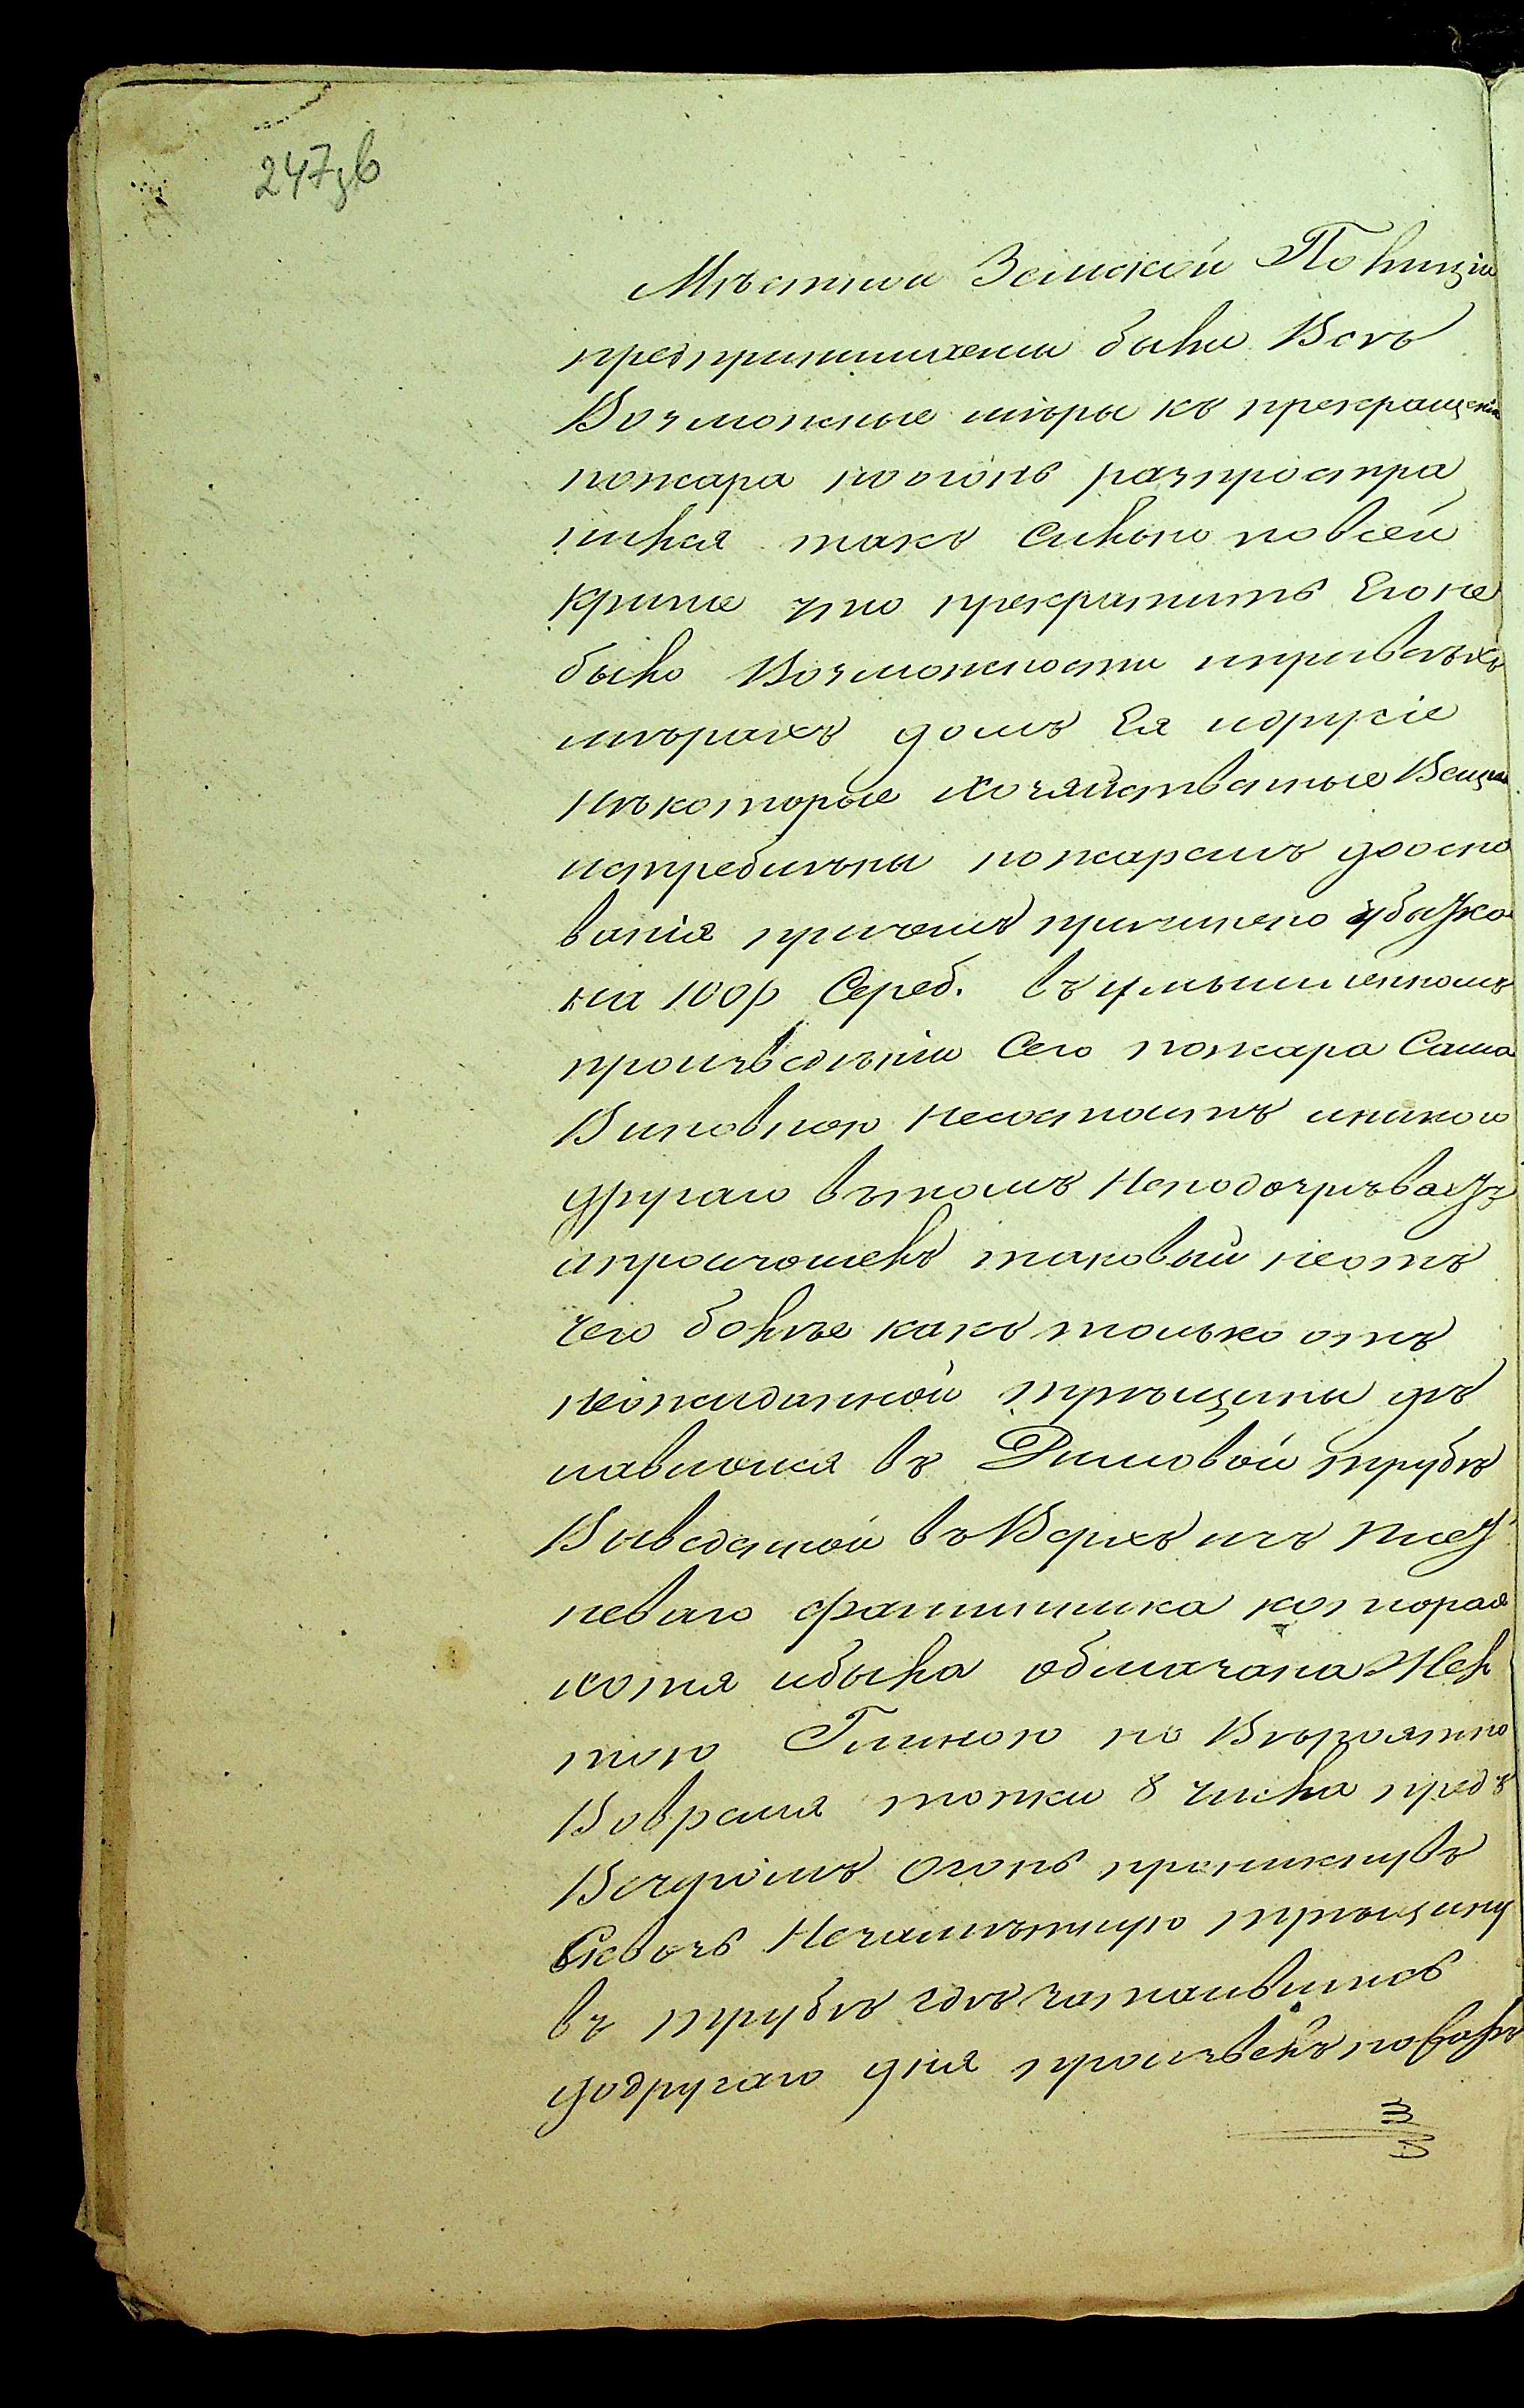 247 зв
Мѣстной Земской Полиціи
предпринимаемы были Всѣ
Возможные мѣры къ прекращенію
пожара но огонь разпростра
нился такъ Сильно повсей
крыше что прекратить Его не
было Возможности ипривсѣхъ
мѣрахъ домъ Ея идругіе
нѣкоторые хозяйственые Вещи
истребилены пожаромъ доосно
ванія причемъ причинено убытко
на 100 р Сереб. въ умышленномъ
произведеніи Сего пожара Сама
Виновною несостоитъ иникого
другаго втомъ Неподозрѣваетъ
ипроизошелъ таковый неотъ
чего болѣе какъ только отъ
неожиданной трѣщины дѣ
лавшейся въ Дымовой трубѣ
Выведеной въ Верхъ изъ
неваго которая
хотя ибыла обмазана Жел
тою Глиною но Вѣроятно
Вовремя топки 8 числа предъ
Вечеромъ огонь проникнувъ
Сквозь Незамѣтную трѣщину
въ трубѣ гдѣ затаившись
додругаго дня произвелъ пожаръ